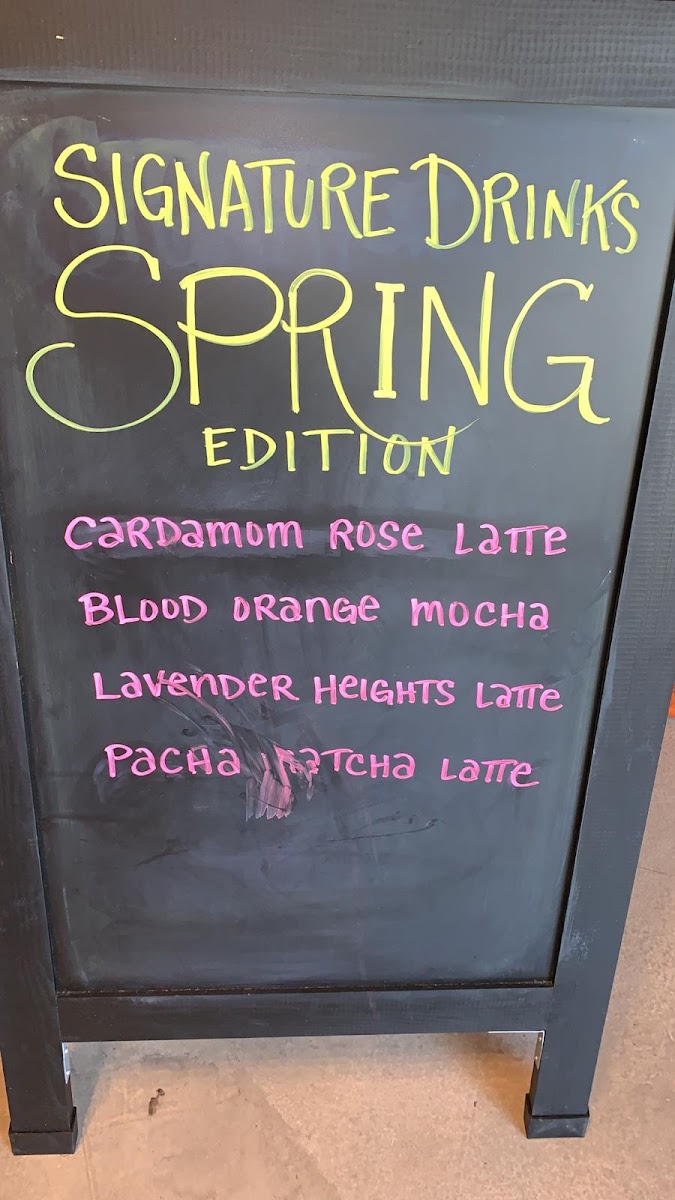 SIGNATURE DRINKS
SPRING
EDITION
CARDAMOM ROSE LATTE
BLOOD ORANGE MOCHA
LAVENDER HEIGHTS LATTE
PACHA MATCHA LATTE